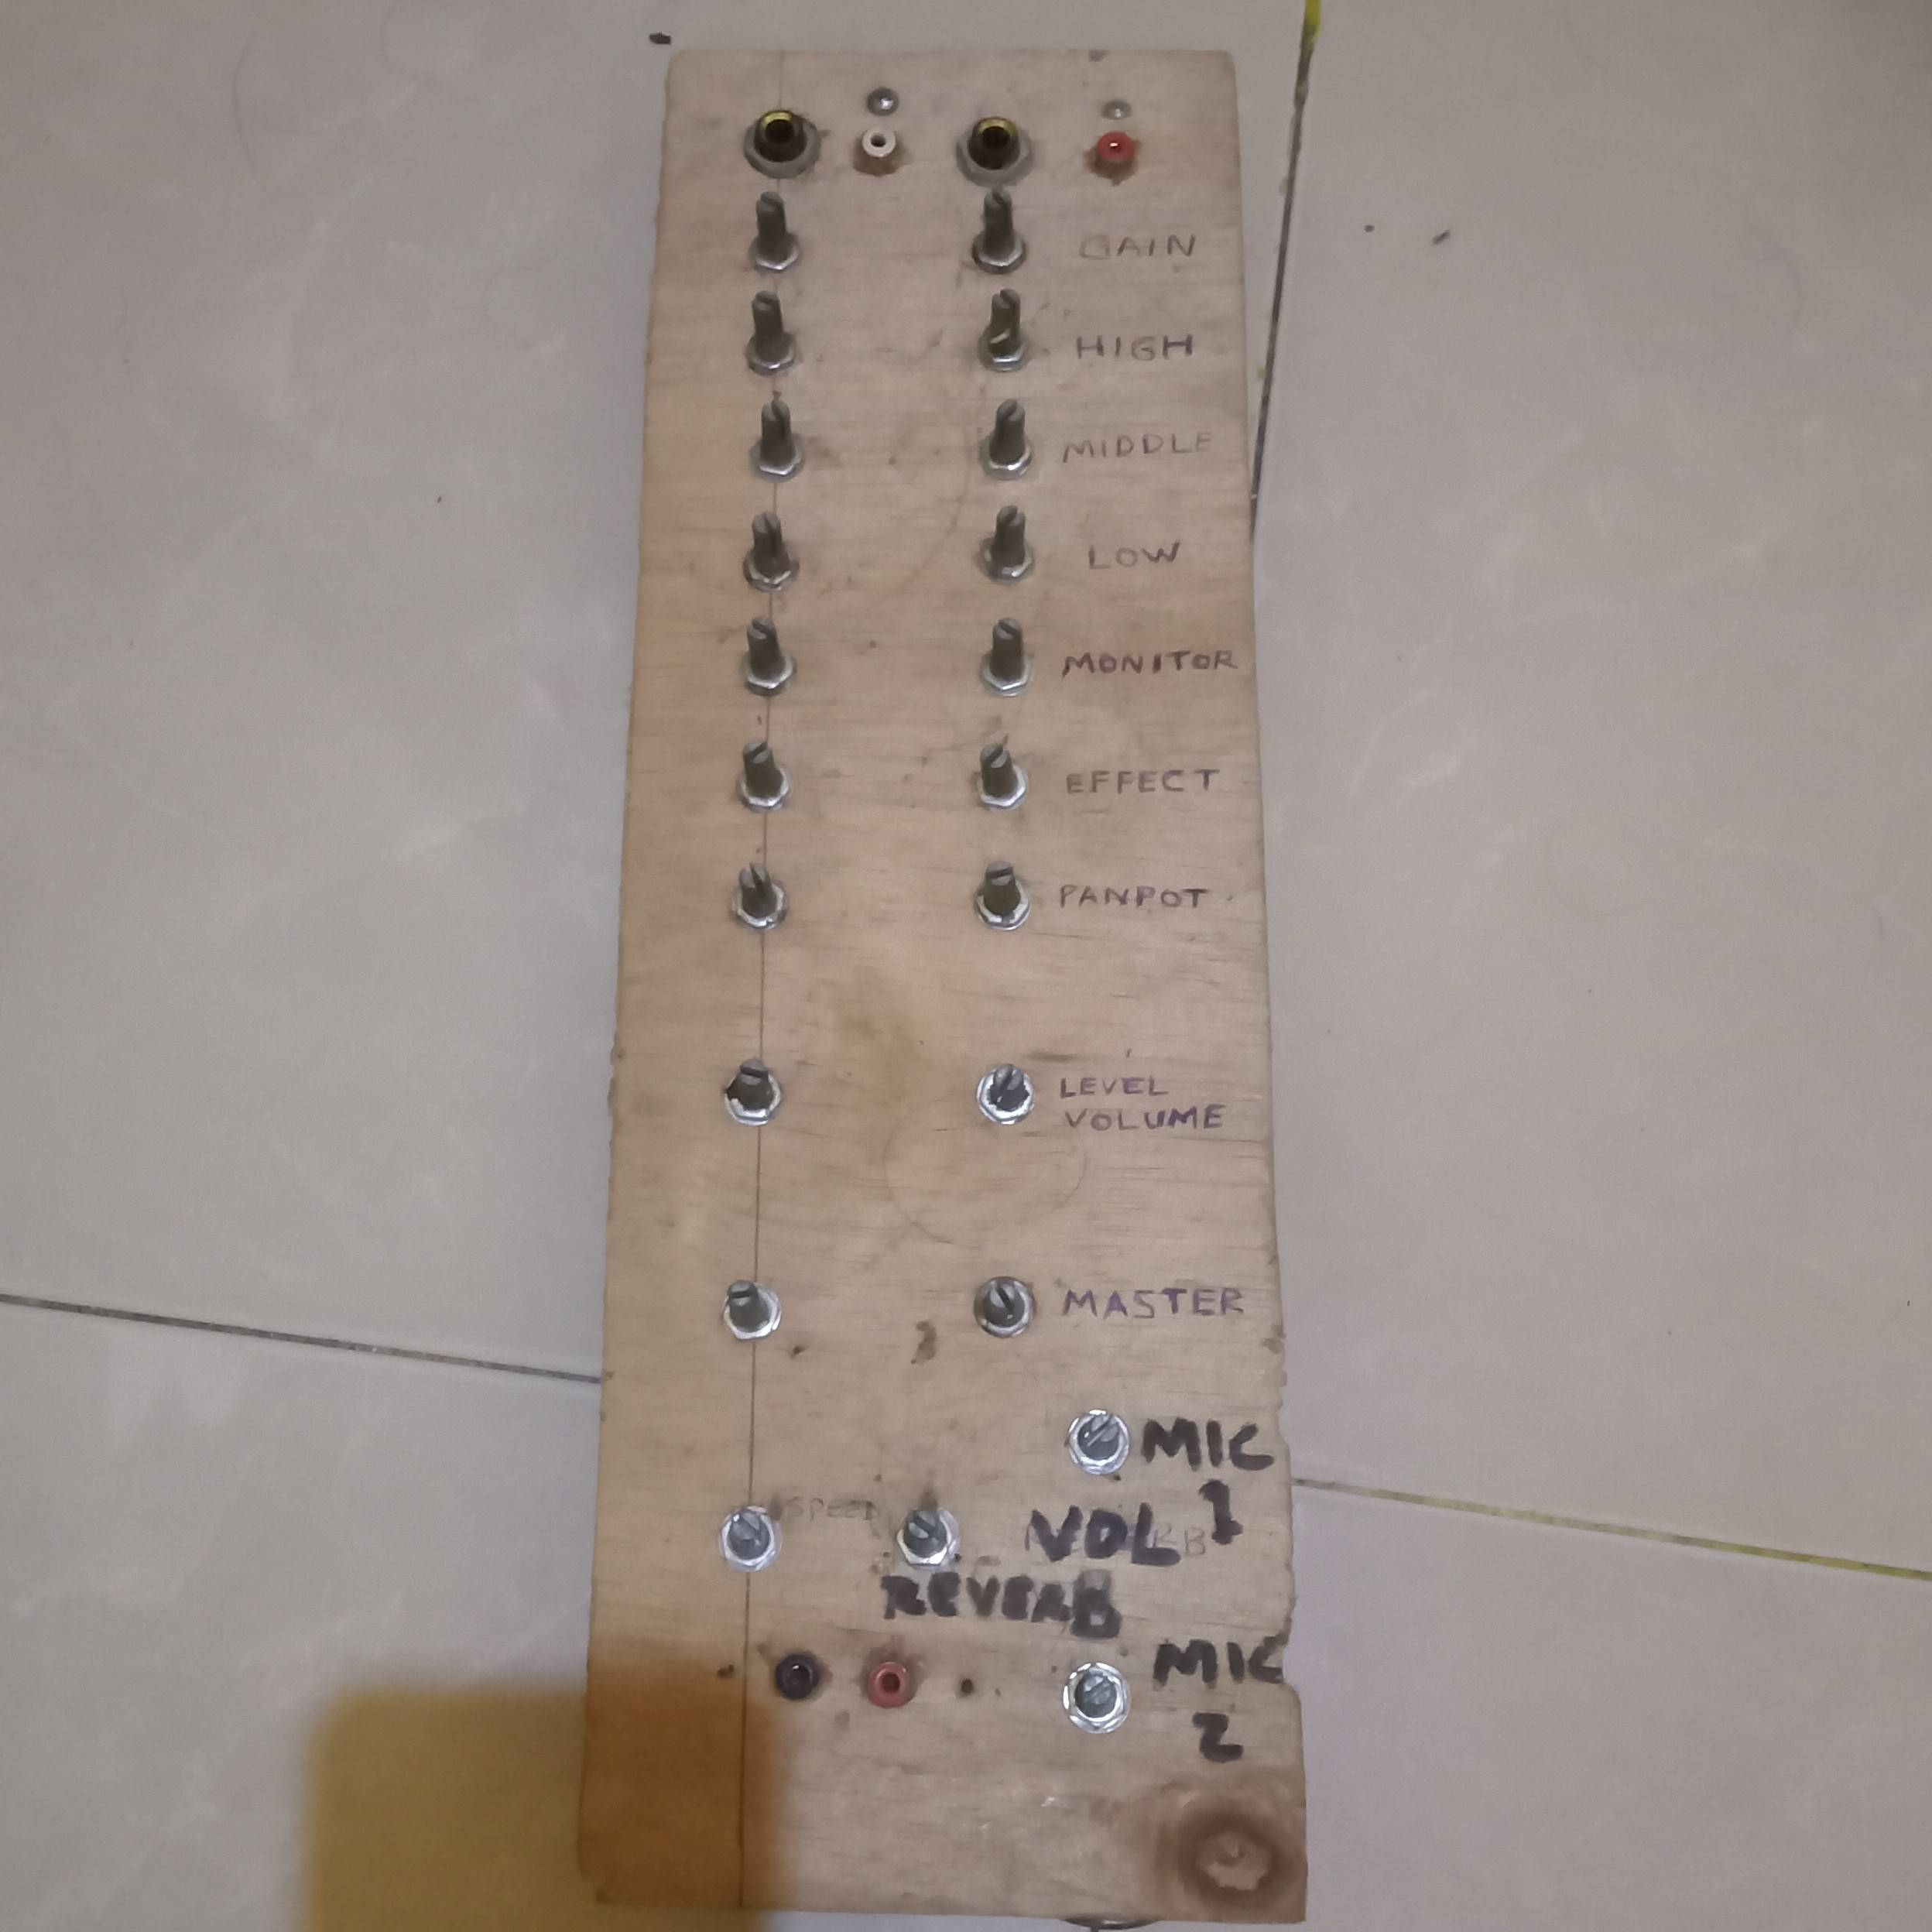 GAIN
HIGH
MIDDLE
LOW
MONITOR
EFFECT
PANPOT
LEVEL
VOLUME
MASTER
MIC
1
SPEED
VOL
REVERB
MIC
2